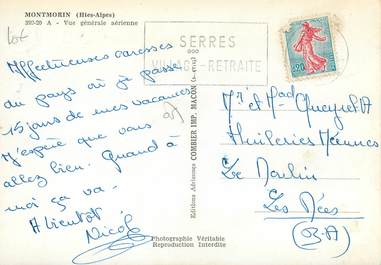 MONTMORIN (Htes-Alpes)
397-20 A - Vue générale aérienne
Lot
SERRES
VILLAGE - RETRAITE
0,20
Affectueuses caresses
du pays où je passe
15 jours de mes vacances
J'espère que vous
allez bien. Quand à
moi ça va -
A bientôt
Nicole
05)
Editions Aériennes COMBIER IMP. MACON
Mr et Mad Queyrel A
Huileries
Le Moulin
Les Mées
(B-A)
Photographie Véritable
Reproduction Interdite